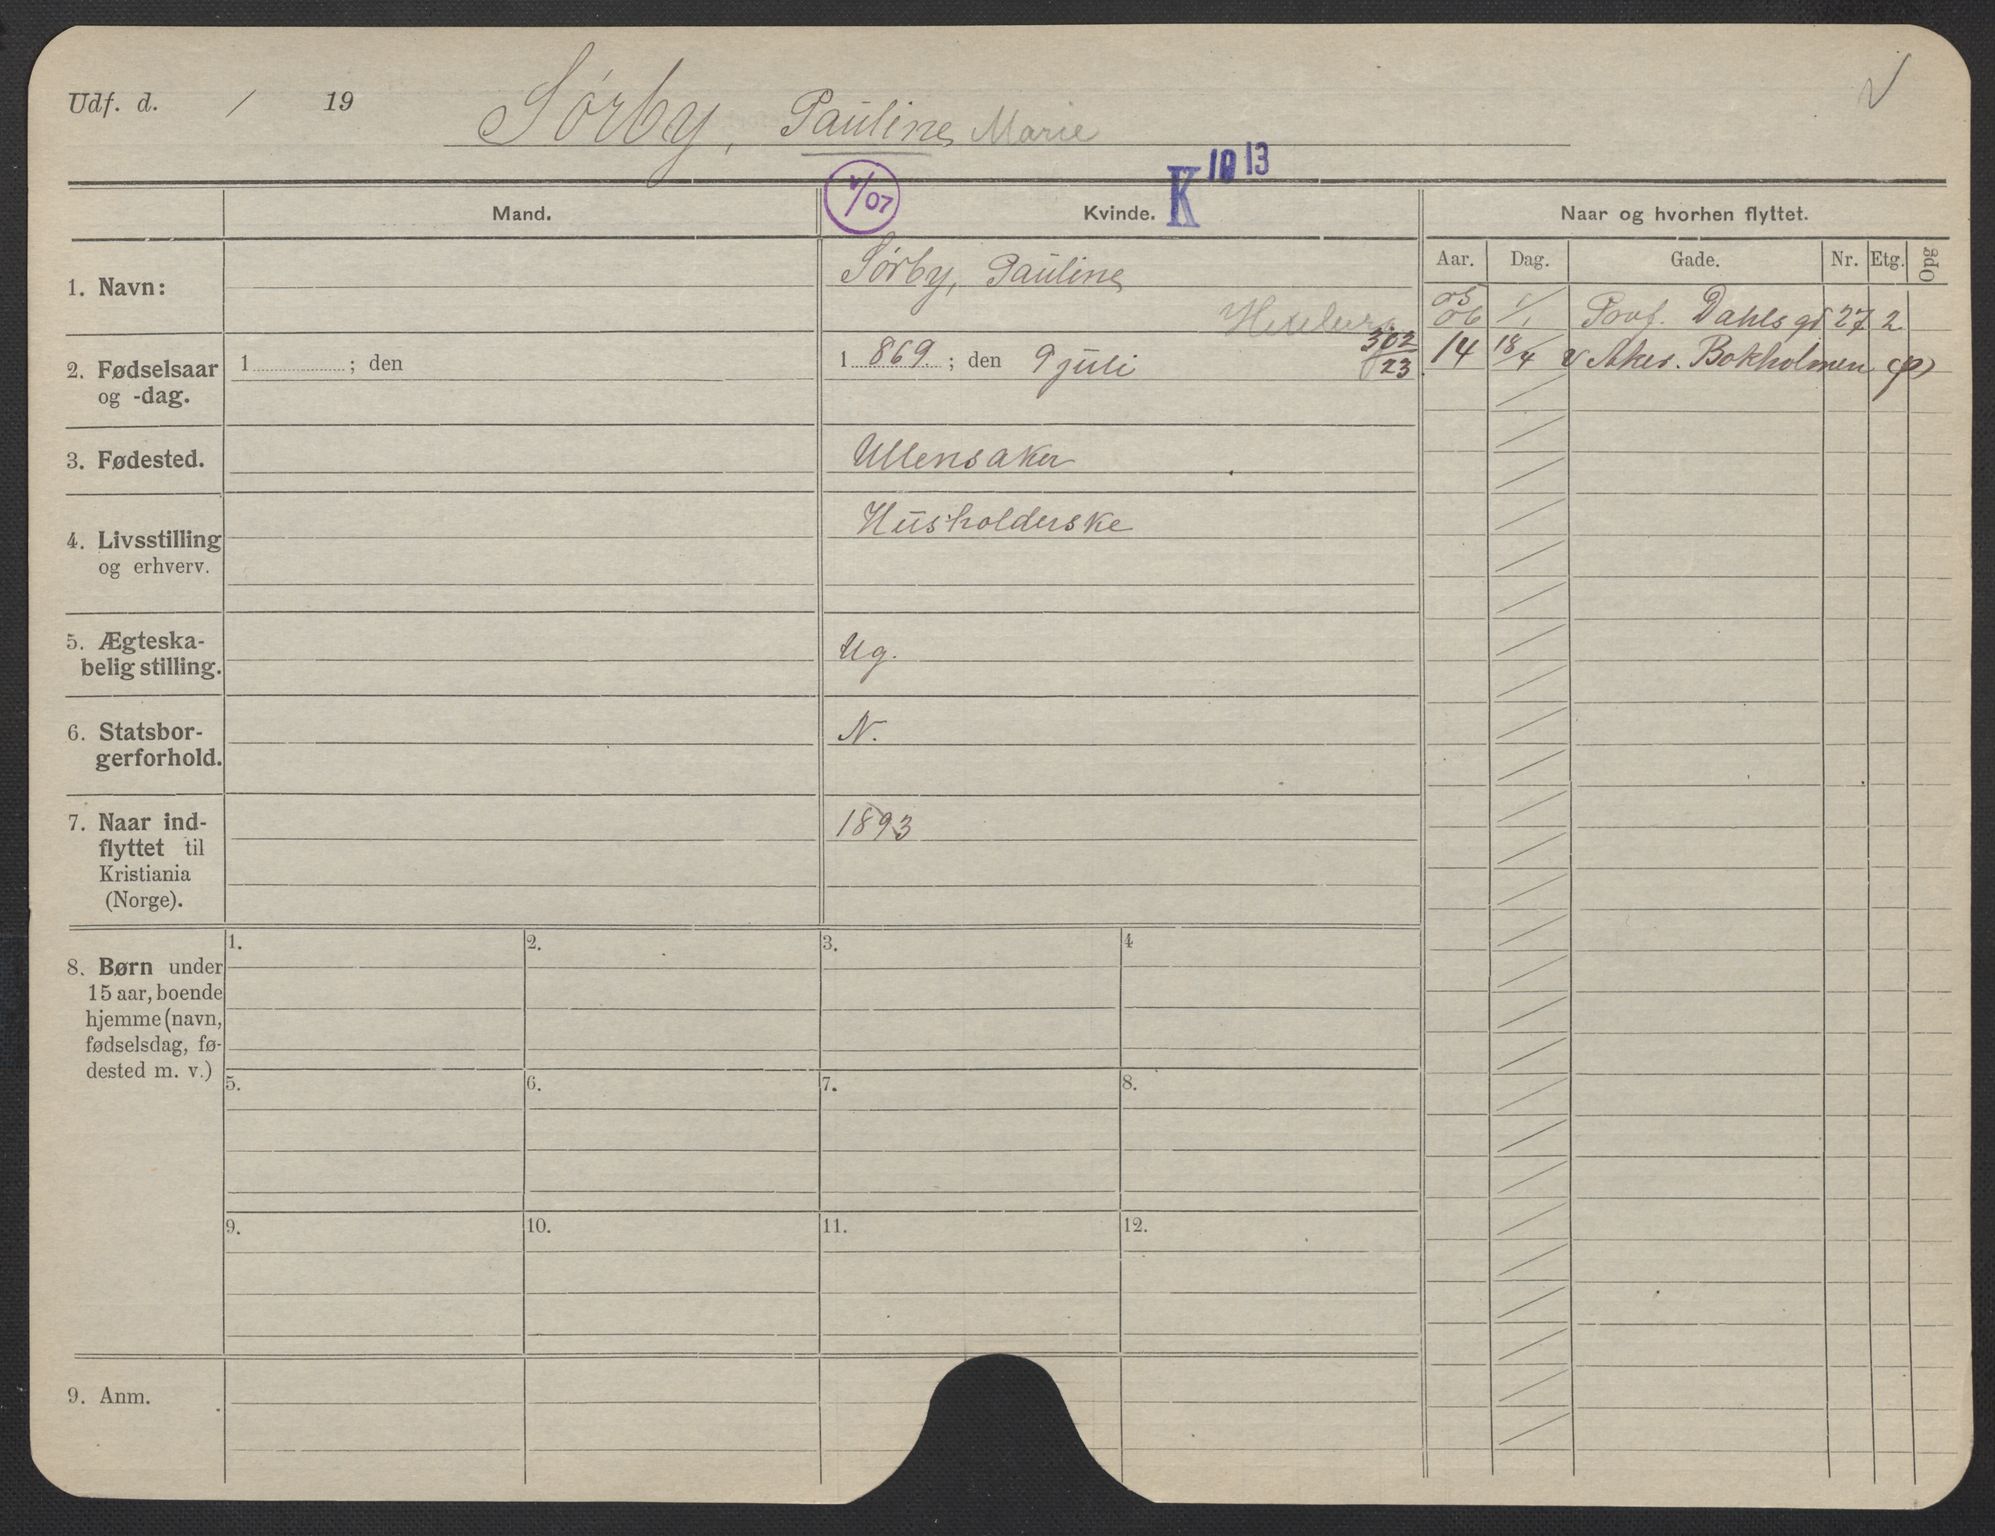 Udf. d. / 19 Sørby, Pauline Marie
1/07 K 10 13
Mand. Kvinde. Naar og hvorhen flyttet.
Aar. Dag. Gade. Nr. Etg. Opg
1. Navn: Sørby, Pauline
05
06 1/1 Prof. Dahls gd 27 2
2. Fødselsaar og -dag. 1 ; den 1 869 ; den 9 juli 302/23
14 18/4 v Aker. Bokholmen (p)
3. Fødested. Ullensaker
4. Livsstilling og erhverv. Husholderske
5. Ægteska-
belig stilling. Ug.
6. Statsbor-
gerforhold. N.
7. Naar ind-
flyttet til
Kristiania
(Norge). 1893
8. Børn under
15 aar, boende
hjemme (navn,
fødselsdag, fø-
dested m. v.)
1. 2. 3. 4
5. 6. 7. 8.
9. 10. 11. 12.
9. Anm.